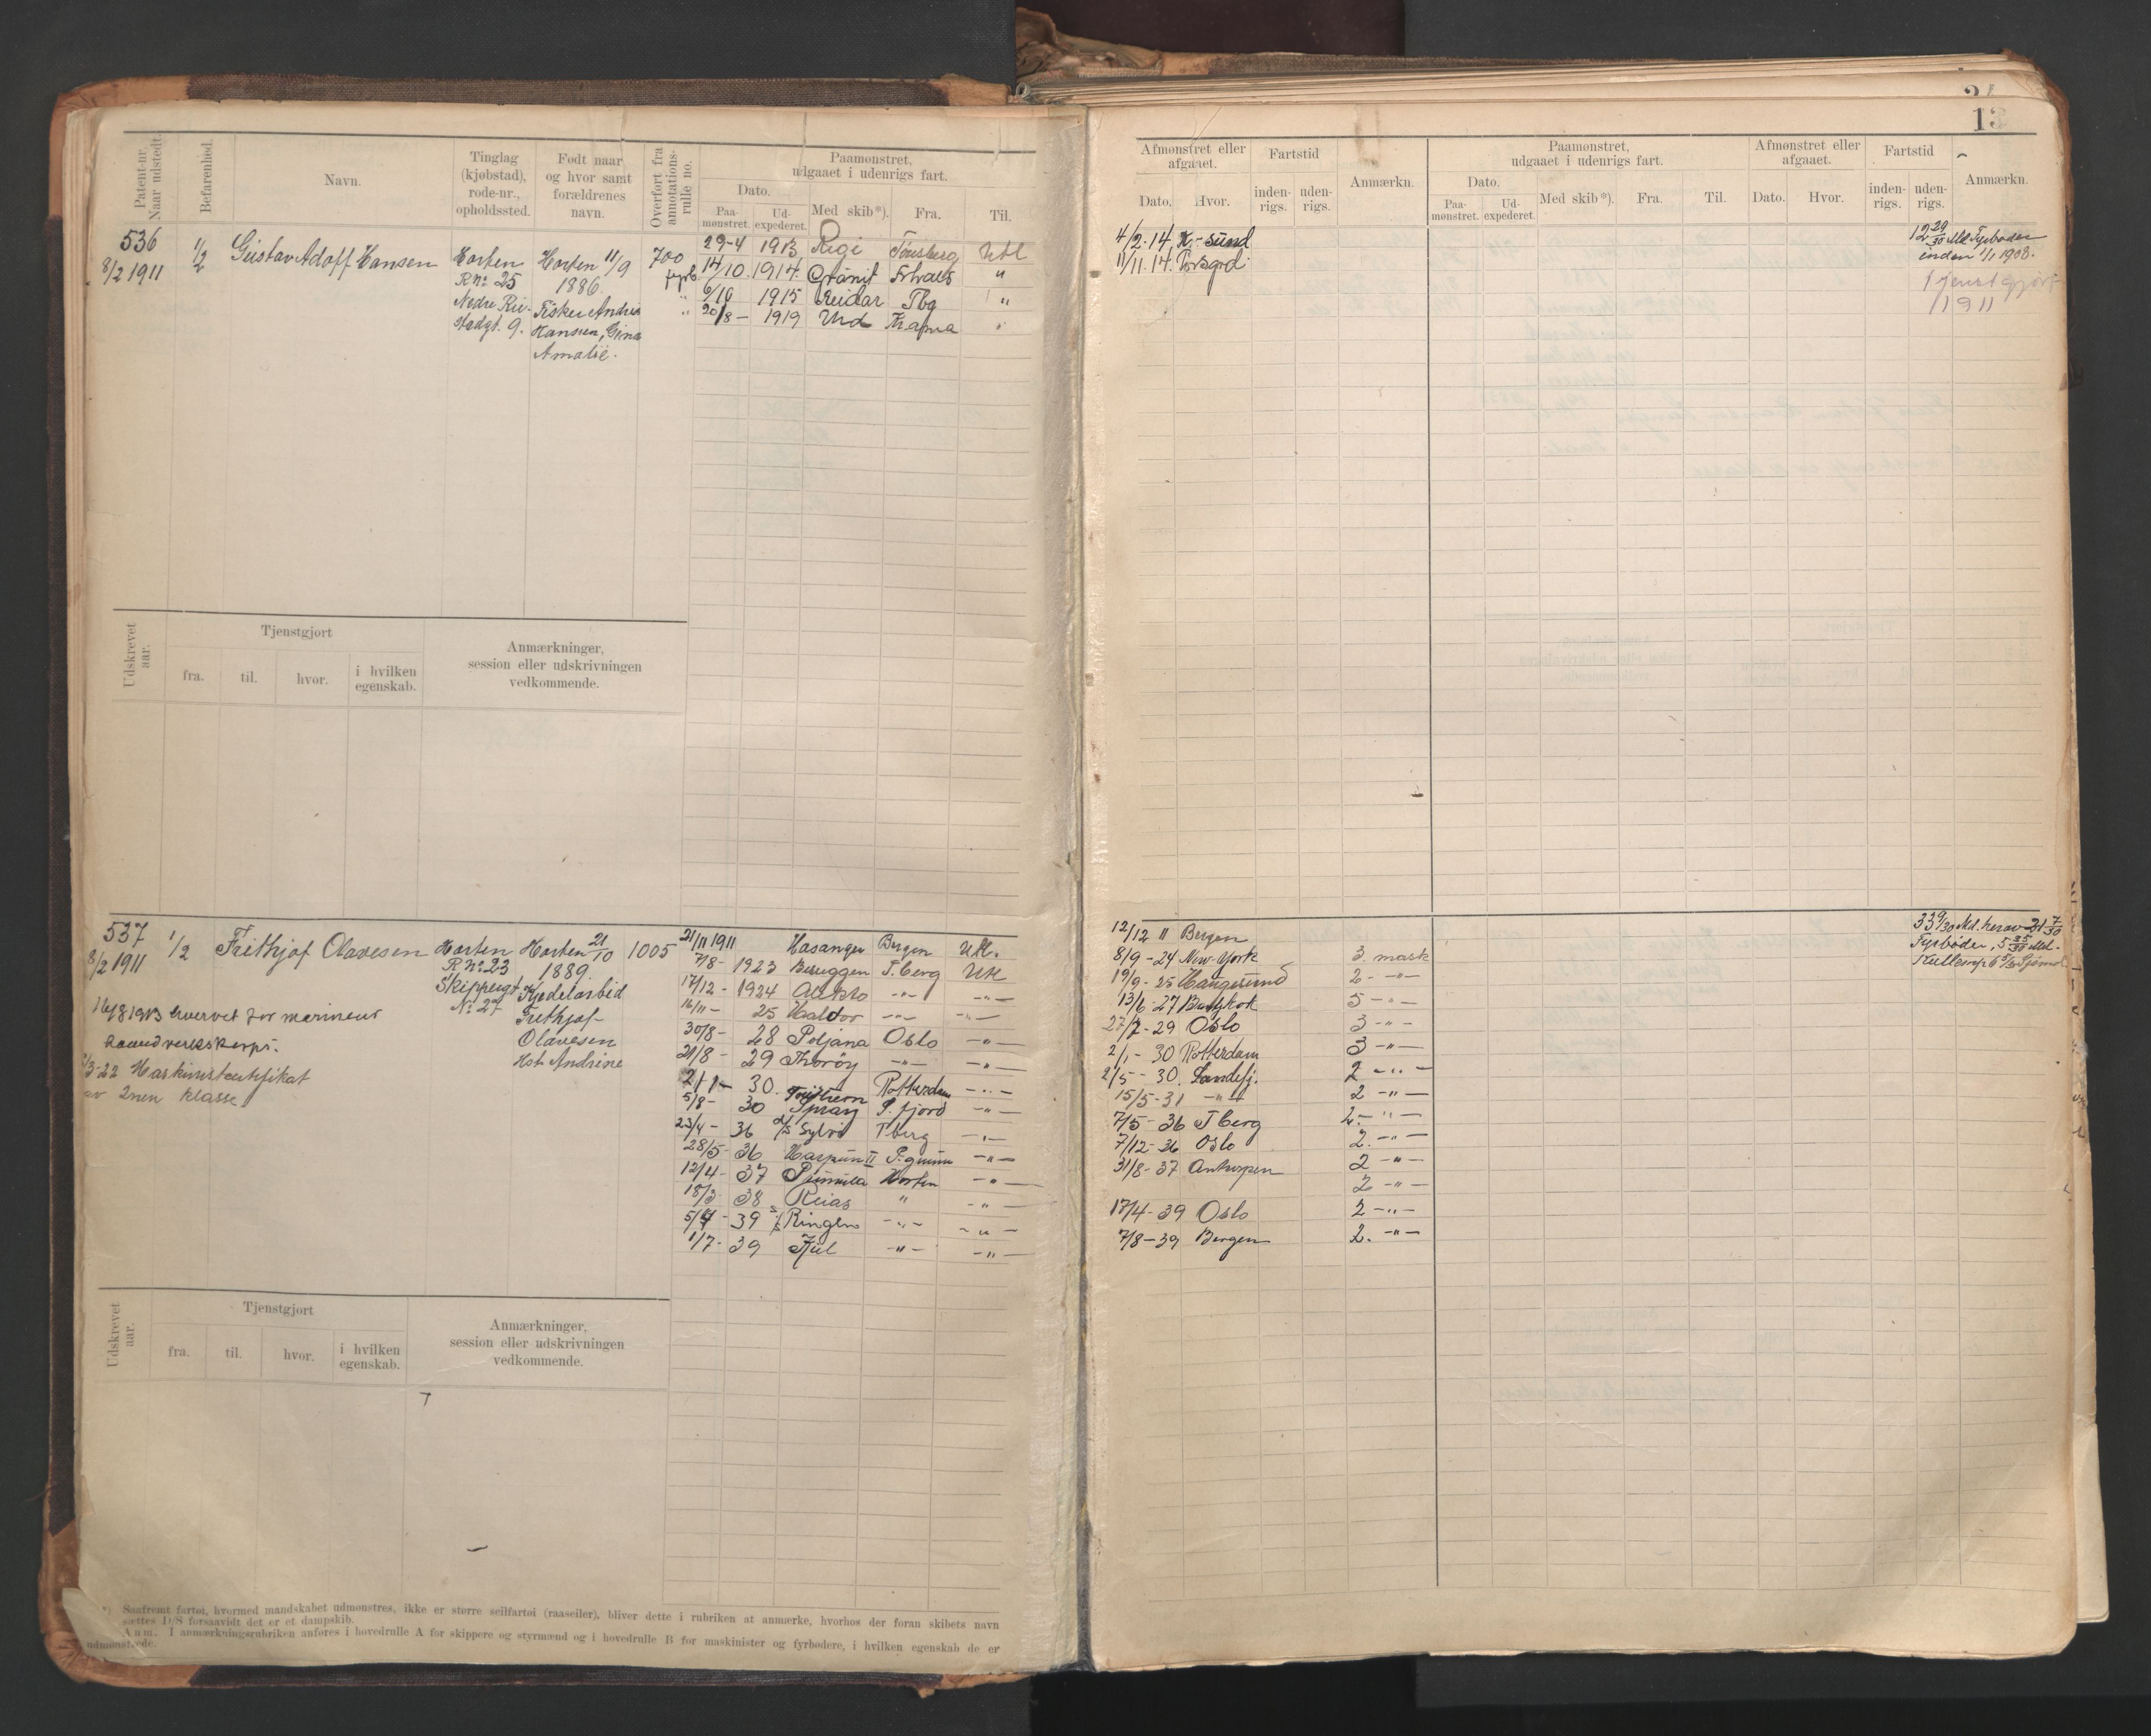 Patent-nr. Naar udstedt.
Befarenhed.
Navn.
Tinglag (kjøbstad), rode-nr., opholdssted.
Født naar og hvor samt forældrenes navn.
Overført fra annotations-rulle no.
Paamønstret, udgaaet i udenrigs fart.
Dato.
Paa-mønstret.
Ud-expederet.
Med skib*).
Fra.
Til.
536
8/2 1911
1/2
Gustav Adolf Hansen
Horten
R no 25
Nedre Kei-
stadgt. 9.
Horten 11/9
1886.
Fisker Andrea
Hansen, Gina
Amalie.
700
fyrb.
"
"
29-4 1913 Rigi Tønsberg Utl
14/10. 1914. Granit Frhals "
6/10 1915 Reidar Tbg "
20/8 - 1919 "
Udskrevet aar.
Tjenstgjort
fra.
til.
hvor.
i hvilken egenskab.
Anmærkninger, session eller udskrivningen vedkommende.
537
8/2 1911
1/2
Frithjof Olavesen
Horten
R no 23
Skippergt
No 27
Horten 21/10
1889.
Kjedelarbeid
Frithjof
Olavesen
Hst. Andrine
1005
16/8 1913 hvervet for marinens
haandverkskorps.
/3-22 Maskinistcertifikat
av 2nen klasse
21/11 1911 Hasanger Bergen Utl.
7/8 - 1923 Besseggen T.berg Utl
17/12 - 1924 -"- -"-
16/11 - 25 Haldor -"- -"-
30/8 - 28 Poljana Oslo -"-
21/8 - 29 Thorøy -"- -"-
2/1 - 30. Rotterdam -"-
5/8 - 30 Spray S. fjord -"-
23/4 - 36 d/s Sylvi Tberg -"-
28/5 - 36 Harpun II P.grunn -"-
12/4 - 37 Horten -"-
18/3 38 Reias " -"-
5/4 - 39 s/s Ringen -"- -"-
1/7 - 39 -"- -"-
Udskrevet aar.
Tjenstgjort
fra.
til.
hvor.
i hvilken egenskab.
Anmærkninger, session eller udskrivningen vedkommende.
*) Saafremt fartøi, hvormed mandskabet udmønstres, ikke er større seilfartøi (raaseiler), bliver dette i rubriken at anmærke, hvorhos der foran skibets navn
sættes D/S forsaavidt det er et dampskib.
Anm. I anmærkningsrubriken anføres i hovedrulle A for skippere og styrmænd og i hovedrulle B for maskinister og fyrbødere, i hvilken egenskab de er
udmønstrede.
13
Afmønstret eller afgaaet.
Dato.
Hvor.
Fartstid
inden-rigs.
uden-rigs.
Anmærkn.
Paamønstret, udgaaet i udenrigs fart.
Dato.
Paa-mønstret.
Ud-expederet.
Med skib*).
Fra.
Til.
Afmønstret eller afgaaet.
Dato.
Hvor.
Fartstid
inden-rigs.
uden-rigs.
Anmærkn.
4/2-14. K-sund
11/11. 14. Porsgrd
12 29/30 Md Fyrbøder
inden 1/1 1908.
Tjenstgjort
1911
12/12 11 Bergen
8/9 - 24 New-York 3. mask
19/9 - 25 Haugesund 2 -"-
13/6 - 27 Bangkok 5 -"-
27/7 - 29 Oslo 3 -"-
2/1 - 30 Rotterdam 3 -"-
2/5 - 30. Sandefj. 2 -"-
15/5 - 31 -"- 2 -"-
7/5 - 36 Tberg 2. -"-
7/12 - 36 Oslo 2. -"-
31/8 - 37 Antwerpen 2 -"-
2 -"-
17/4 - 39 Oslo 2 -"-
7/8 - 39 Bergen 2. -"-
33 9/30 Md. herav 21 7/30
Fyrbøder, 5 25/30 Md.